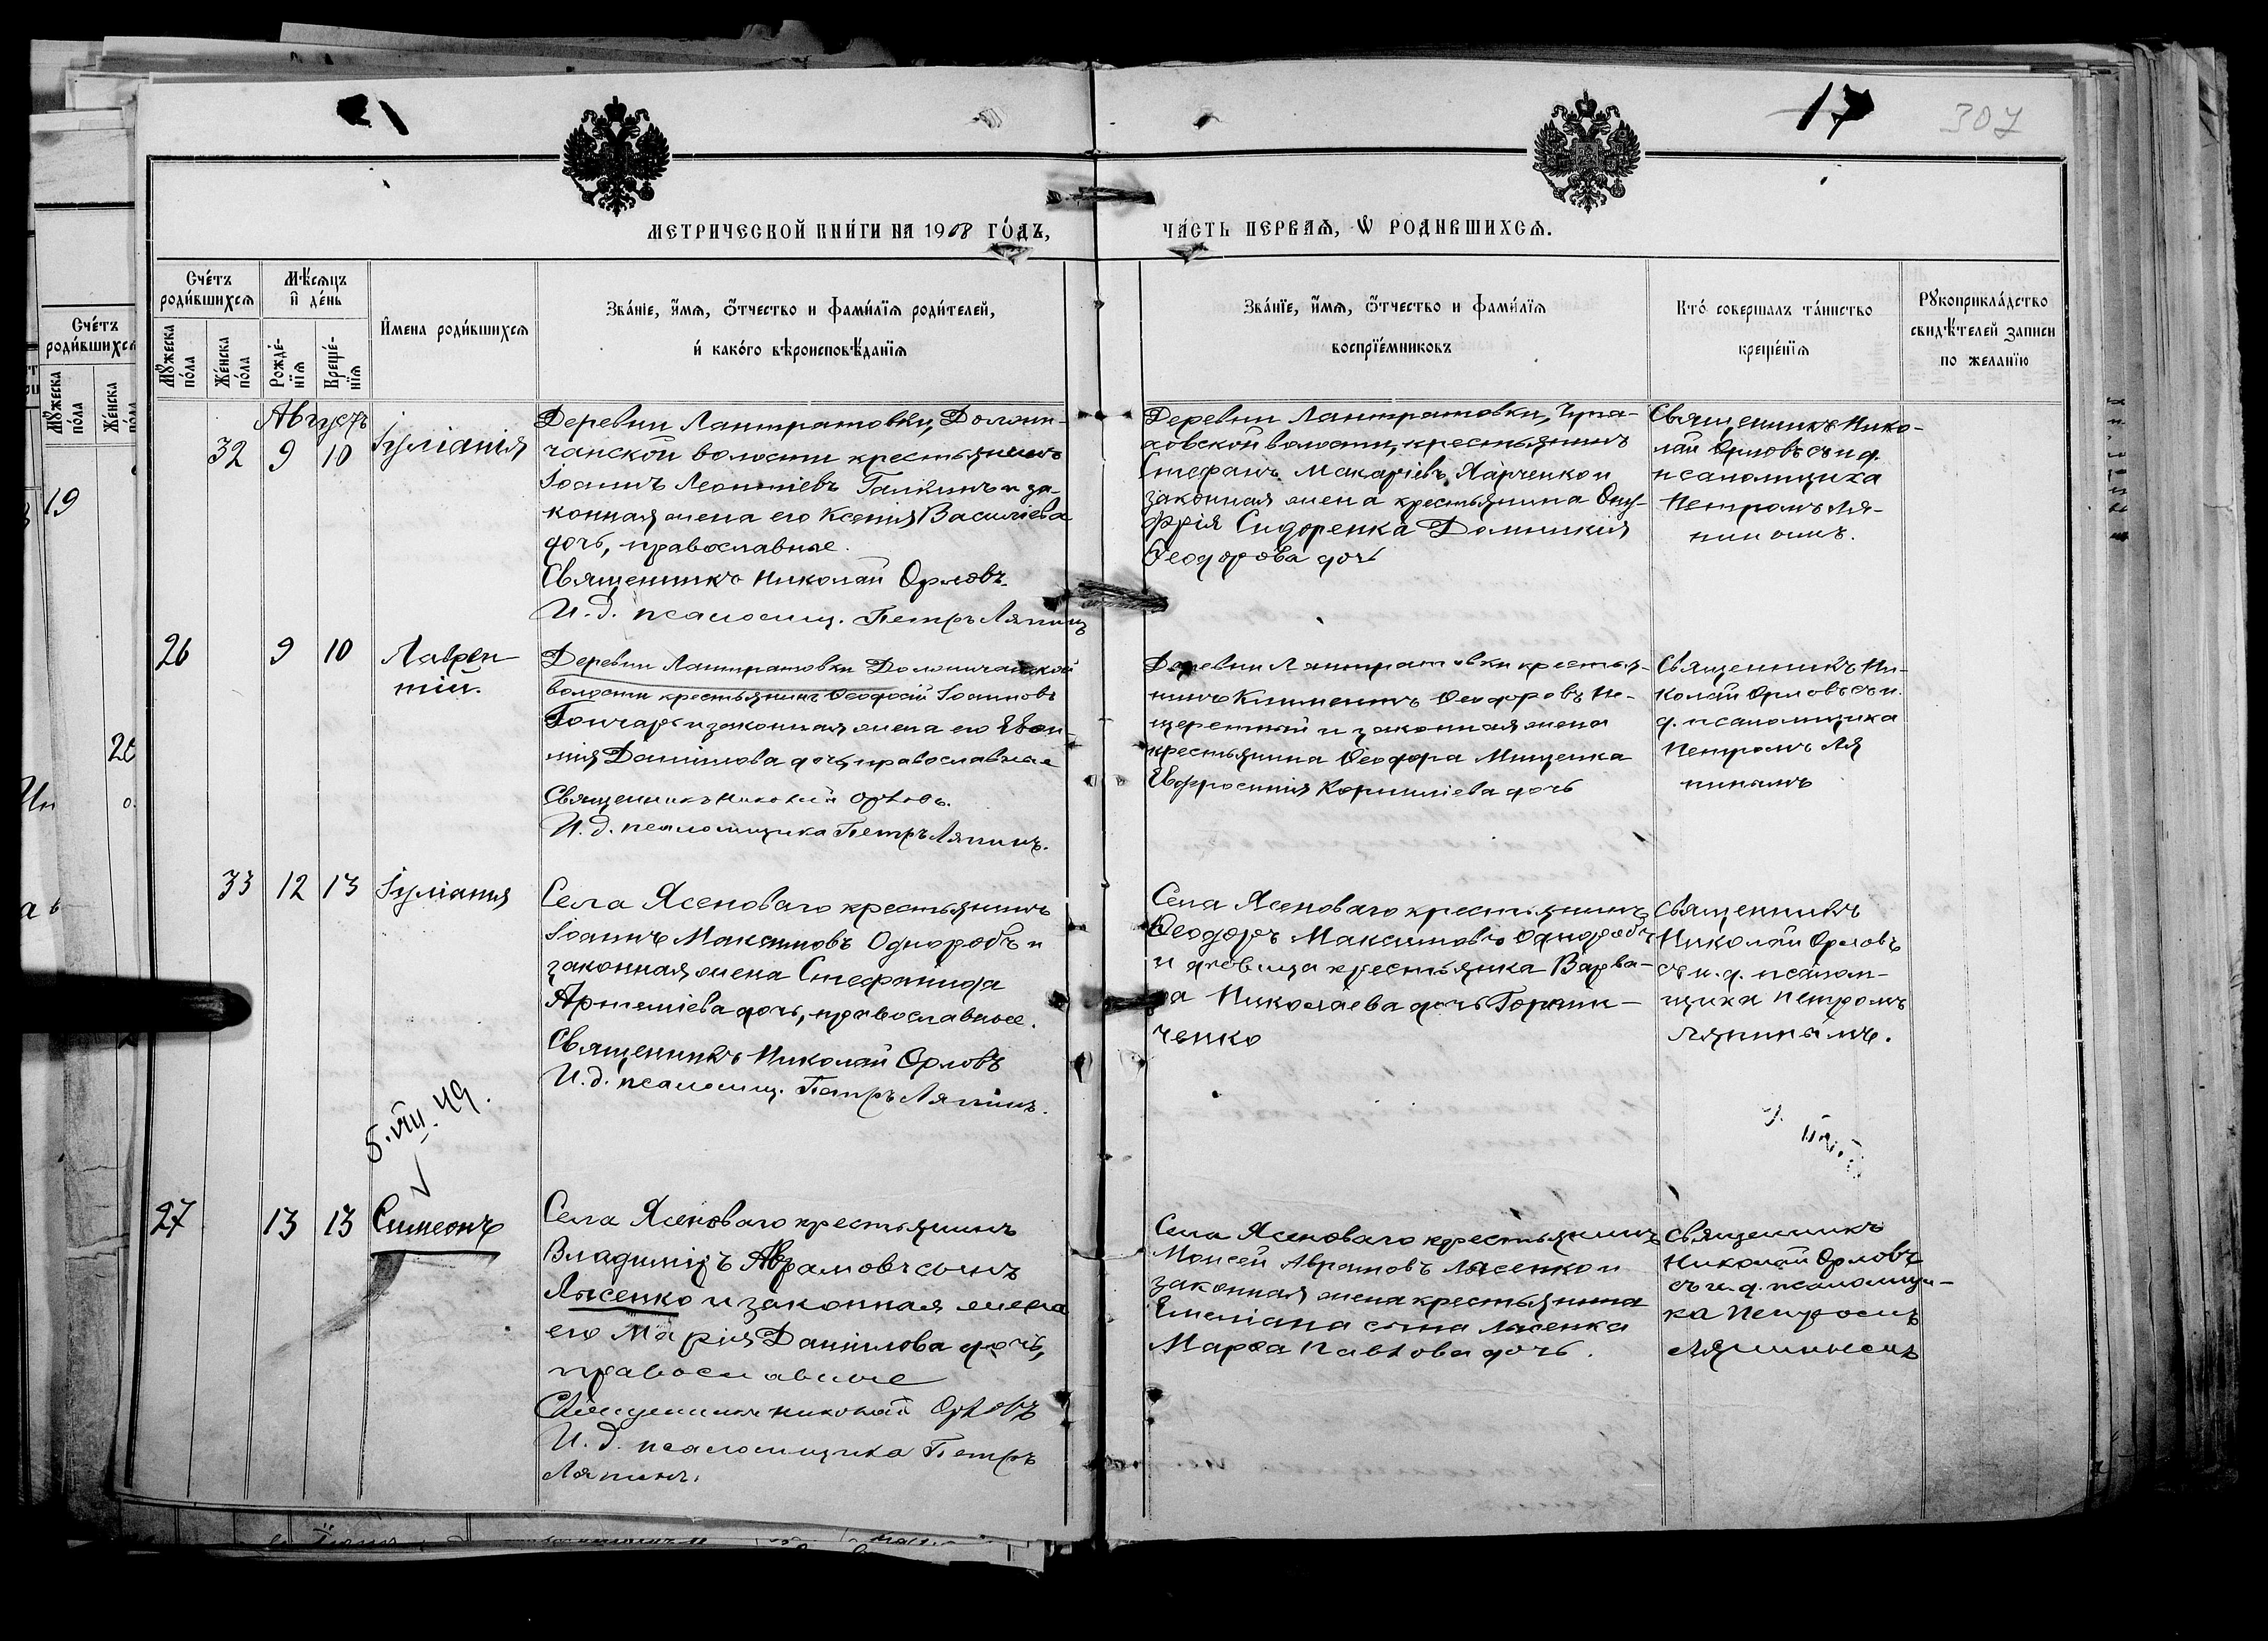 17
307
МЕТРИЧЕСКОЙ КНИГИ НА 1908 ГОДЪ,
ЧАСТЬ ПЕРВАЯ, Ѡ РОДИВШИХСЯ.
Счетъ родившихся
Мужеска пола
Женска пола
Мѣсяцъ и день
Рожденія
Крещенія
Имена родившихся
Званіе, имя, отчество и фамилія родителей,
и какого вѣроисповѣданія
Званіе, имя, отчество и фамилія
воспріемниковъ
Кто совершалъ таинство
крещенія
Рукоприкладство
свидѣтелей записи
по желанію
Августъ
32 9 10 Іуліанія
Деревни Лантратовки,
чанской волости крестьянинъ
Іоаннъ Леонтіевъ Галкинъ и за-
конная жена его Ксенія Василіева
дочь, православные.
Священникъ Николай Орловъ.
И. д. псаломщ. Петръ Ляпинъ
Деревни Лантратовки,
волости, крестьянинъ
Стефанъ Макаріевъ Харченко и
законная жена крестьянина Ону-
фрія Сидоренка Домникія
Ѳеодорова дочь
Священникъ Нико-
лай Орловъ съ и д.
псаломщика
Петромъ Ля-
26 9 10 Лаврен-
тій.
Деревни Лантратовки
волости крестьянинъ Ѳеодосій Іоанновъ
Гончаръ и законная жена его
Даніилова дочь, православные
Священникъ Николай Орловъ.
И. д. псаломщика Петръ Ляпинъ.
Деревни Лантратовки крестья-
нинъ Климентъ Ѳеодоровъ Пе-
щеретный и законная жена
крестьянина Ѳеодора Мищенка
Евфросинія Корниліева дочь
Священникъ Ни-
колай Орловъ съ и.
д. псаломщика
Петромъ Ля
пинымъ
33 12 13 Іуліанія
Села Ясеноваго крестьянинъ
Іоаннъ Максимовъ Одноробъ и
законная жена Стефанида
Артеміева дочь, православные.
Священникъ Николай Орловъ
И. д. псаломщ. Петръ Ляпинъ.
Села Ясеноваго крестьянинъ
Ѳеодоръ Максимовъ Одноробъ
и дѣвица крестьянка Варва-
ра Николаева дочь
ченко
Священникъ
Николай Орловъ
съ и. д. псалом-
щика Петромъ
Ляпинымъ.
5. VIII. 49.
27 13 13 Симеонъ
Села Ясеноваго крестьянинъ
Владиміръ Аврамовъ сынъ
Лысенко и законная жена
его Марія Даніилова дочь,
православные
Священникъ Николай Орловъ
И. д. псаломщика Петръ
Ляпинъ.
Села Ясеноваго крестьянинъ
Моисей Аврамовъ Лысенко и
законная жена крестьянина
Емеліана сына Лысенка
Марѳа Павлова дочь.
Священникъ
Николай Орловъ
съ и. д. псаломщи-
ка Петромъ
Ляпинымъ